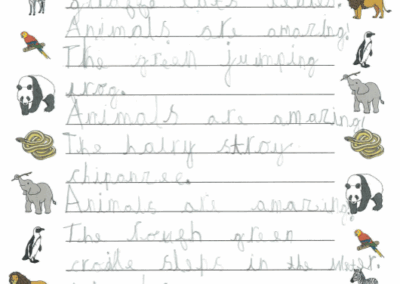 giraffe eats leaves.
Animals are amazing!
The green jumping
frog.
Animals are amazing!
The hairy stroy
chipanzee.
Animals are amazing!
The tough green
crodile sleps in the water.